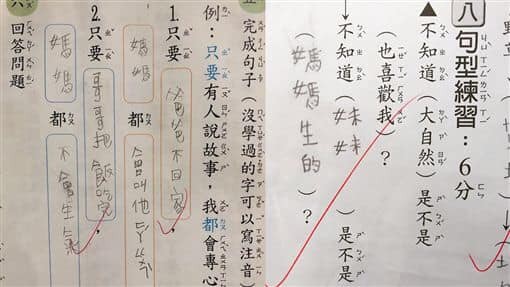 完成句子（沒學過的字可以寫注音）
例：只要有人說故事，我都會專心
1.只要爸爸不回家，
媽媽都會叫他
2.只要哥哥把飯吃，
媽媽都不會生氣
六
回答問題
八句型練習：6分
▲不知道（大自然）是不是
（也喜歡我）？
↓不知道（妹妹）是不是
（媽媽生的）？